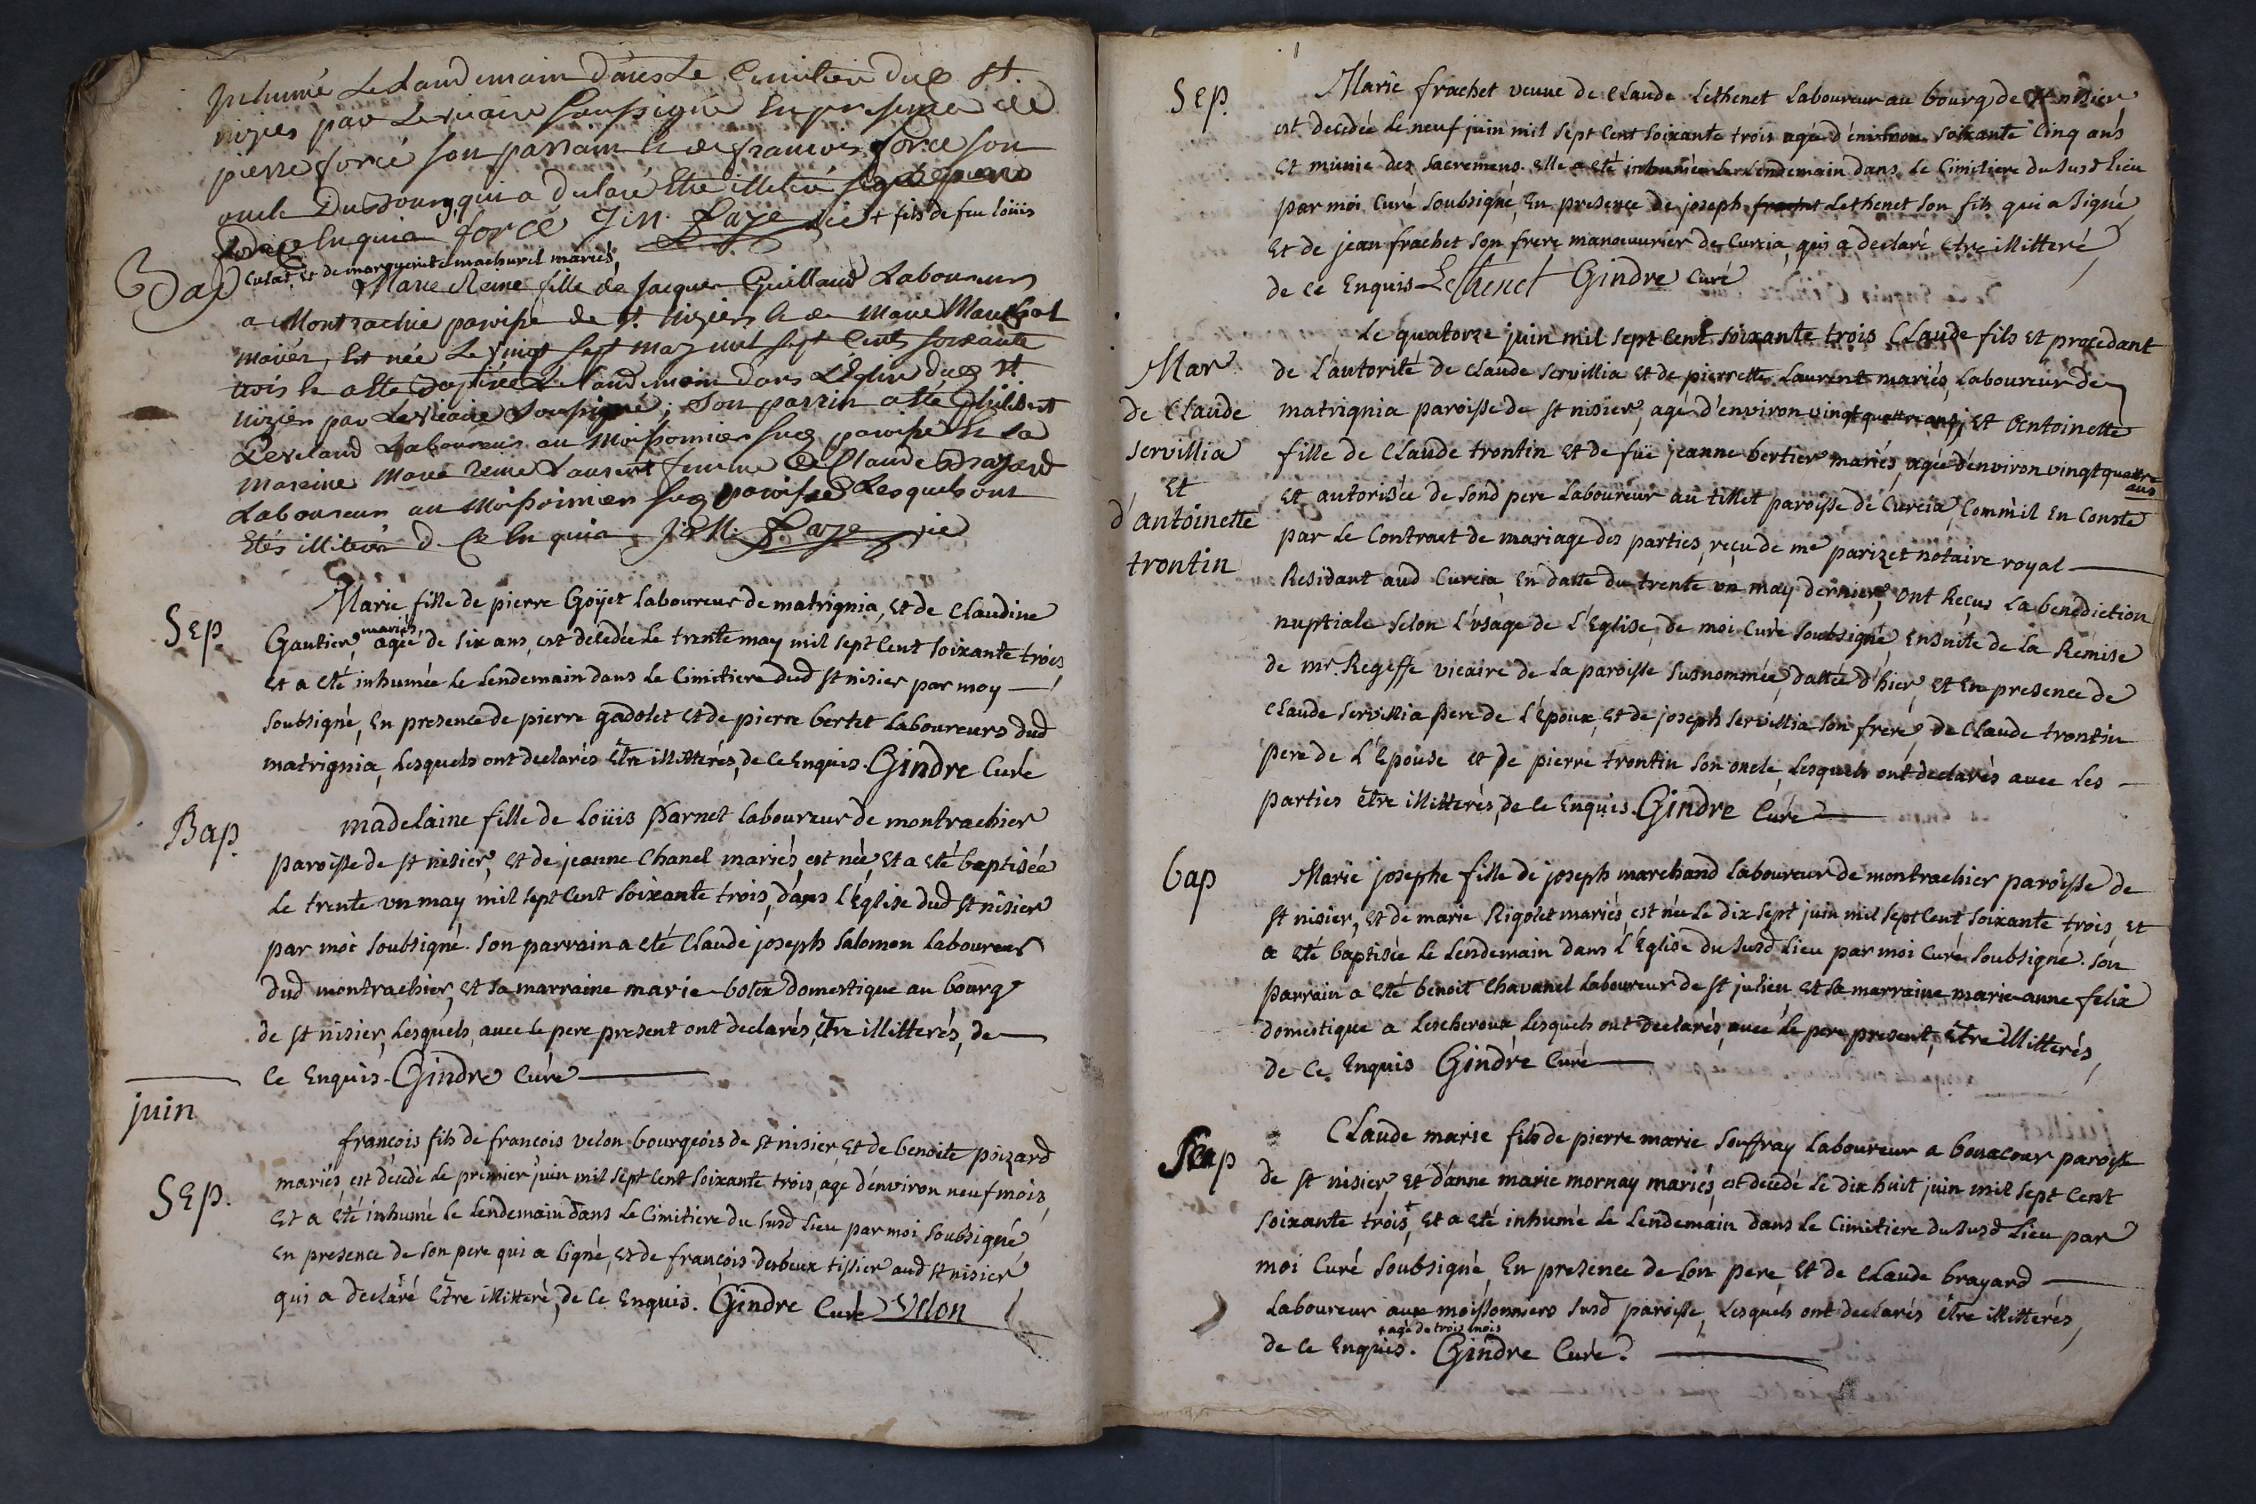 inhumé Le Landemain dans Le Cimitiere dud St.
nizier par Le vicaire soussigné En presence de
pierre forcé son parrain et de francois forcé son
oncle Du Bourg qui a declaré Etre illiteré
Enquis forcé J:M: Laze vic + fils de feu loüis
Cutat, et de marguerite machurel mariés,
Bap
Marie Reine fille de Jacques Guillaud Laboureur
a Montrachie paroisse de St. nizier et de Marie
mariés, Est née Le vingt sept may mil sept Cent soixante
trois et a été Baptisée Le Landemain dans L'Eglise dud St
nizier par Le vicaire soussigné; son parrin a été philibert
Laboureur au Moissonnier sud paroisse et sa
mareine Marie Reine Laurent femme de Claude Brayard
Laboureur au Moissonnier sud paroisse Lesquels ont
Etés illiterés de Ce Enquis J:M: Laze vic
Sep.
Marie fille de pierre Goÿet laboureur de matrignia, et de Claudine
Gautier, mariés, agée de six ans, est decedée le trente may mil sept Cent soixante trois,
et a eté inhumée le lendemain dans le Cimitiere dud st nisier par moy
soubsigné, En presence de pierre gadolet et de pierre bertet laboureurs dud
matrignia, lesquels ont declarés Etre illitterés, de ce Enquis. Gindre Curé
Bap.
madelaine fille de loüis parnet laboureur de montrachier
paroisse de st nisier, et de jeanne Chanel mariés, est née, et a eté baptisée
le trente un may mil sept Cent soixante trois, dans l'Eglise dud st nisier
par moi soubsigné. son parrain a eté Claude joseph salomon laboureur
dud montrachier, et sa marraine marie bolex domestique au bourg
de st nisier, lesquels, avec le pere present ont declarés, être illitterés, de
Ce Enquis. Gindre Curé
juin
Sep.
françois fils de françois velon bourgeois de st nisier et de benoite poizard
mariés, est décédé le premier juin mil sept Cent soixante trois, agé d'environ neuf mois,
et a eté inhumé le lendemain dans le Cimitiere du susd lieu par moi soubsigné,
En presence de son pere qui a signé, et de françois desbeux tissier aud st nisier
qui a declaré Etre illitteré, de Ce Enquis. Gindre Curé Velon
Sep.
Marie frachet veuve de Claude Lethenet Laboureur au bourg de st nisier
est decedée le neuf juin mil sept Cent soixante trois agée d'environ soixante Cinq ans
et munie des sacremens. elle a eté inhumée le lendemain dans le Cimitiere du susd lieu
par moi Curé soubsigné, En presence de joseph Lethenet son fils qui a signé,
et de jean frachet son frere manœuvrier de Curcia, qui a declaré être illitteré
de ce Enquis Lethenet Gindre Curé
Mar.
de Claude
servillia
et
d'antoinette
trontin
Le quatorze juin mil sept Cent soixante trois Claude fils et procedant
de l'autorité de Claude servillia et de pierrette Laurent mariés, laboureur de
matrignia paroisse de st nisier, agé d'environ vingt quatre ans; et Antoinette
fille de Claude trontin et de füe jeanne bertier mariés, agée d'environ vingt quatre
ans
et autorisée de sond pere laboureur au tillet paroisse de Curcia, Comm'il en Conste
par le Contract de mariage des parties, reçu de me parizet notaire royal
Residant aud Curcia, en datte du trente un may dernier, ont Reçus la benediction
nuptiale selon l'usage de l'Eglise, de moi Curé soubsigné, Ensuite de la Remise
de mr. Regeffe vicaire de la paroisse susnommée, dattée d'hier et en presence de
Claude servillia pere de l'Epoux, et de joseph servillia son frere, de Claude trontin
pere de l'Epouse et de pierre trontin son oncle, lesquels ont declarés avec les
parties être illitterés, de Ce Enquis. Gindre Curé
bap
Marie josephe fille de joseph marchand laboureur de montrachier paroisse de
st nisier, et de marie Rigolet mariés est née le dix sept juin mil sept Cent soixante trois, et
a eté baptisée le lendemain dans l'Eglise du susd lieu par moi Curé soubsigné. son
parrain a eté benoit Chavanel laboureur de st julien et sa marraine marie anne felix
domestique a Lescheroux, lesquels ont declarés, avec le pere present, être illitterés,
de Ce Enquis Gindre Curé
Sep
Claude marie fils de pierre marie souffray laboureur a bonacour paroisse
de st nisier, et d'anne marie mornay mariés, est decedé le dix huit juin mil sept Cent
soixante trois,+ et a eté inhumé le lendemain dans le Cimitiere du susd lieu par
moi Curé soubsigné, En presence de son pere, et de Claude brayard
laboureur aux moissonniers susd paroisse, lesquels ont declarés être illitterés,
+ agé de trois mois
de Ce Enquis. Gindre Curé.